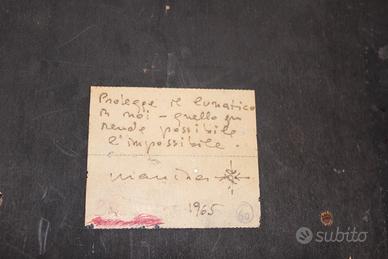 Protegge il lunatico
in noi - quello
rende possibile
l'impossibile.
1965
60
subito